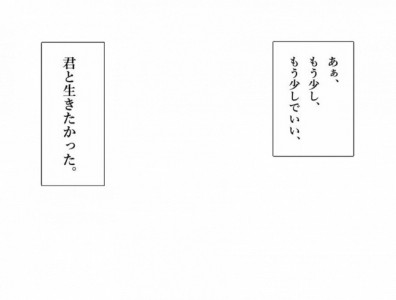 あぁ、
もう少し、
もう少しでいい、
君と生きたかった。